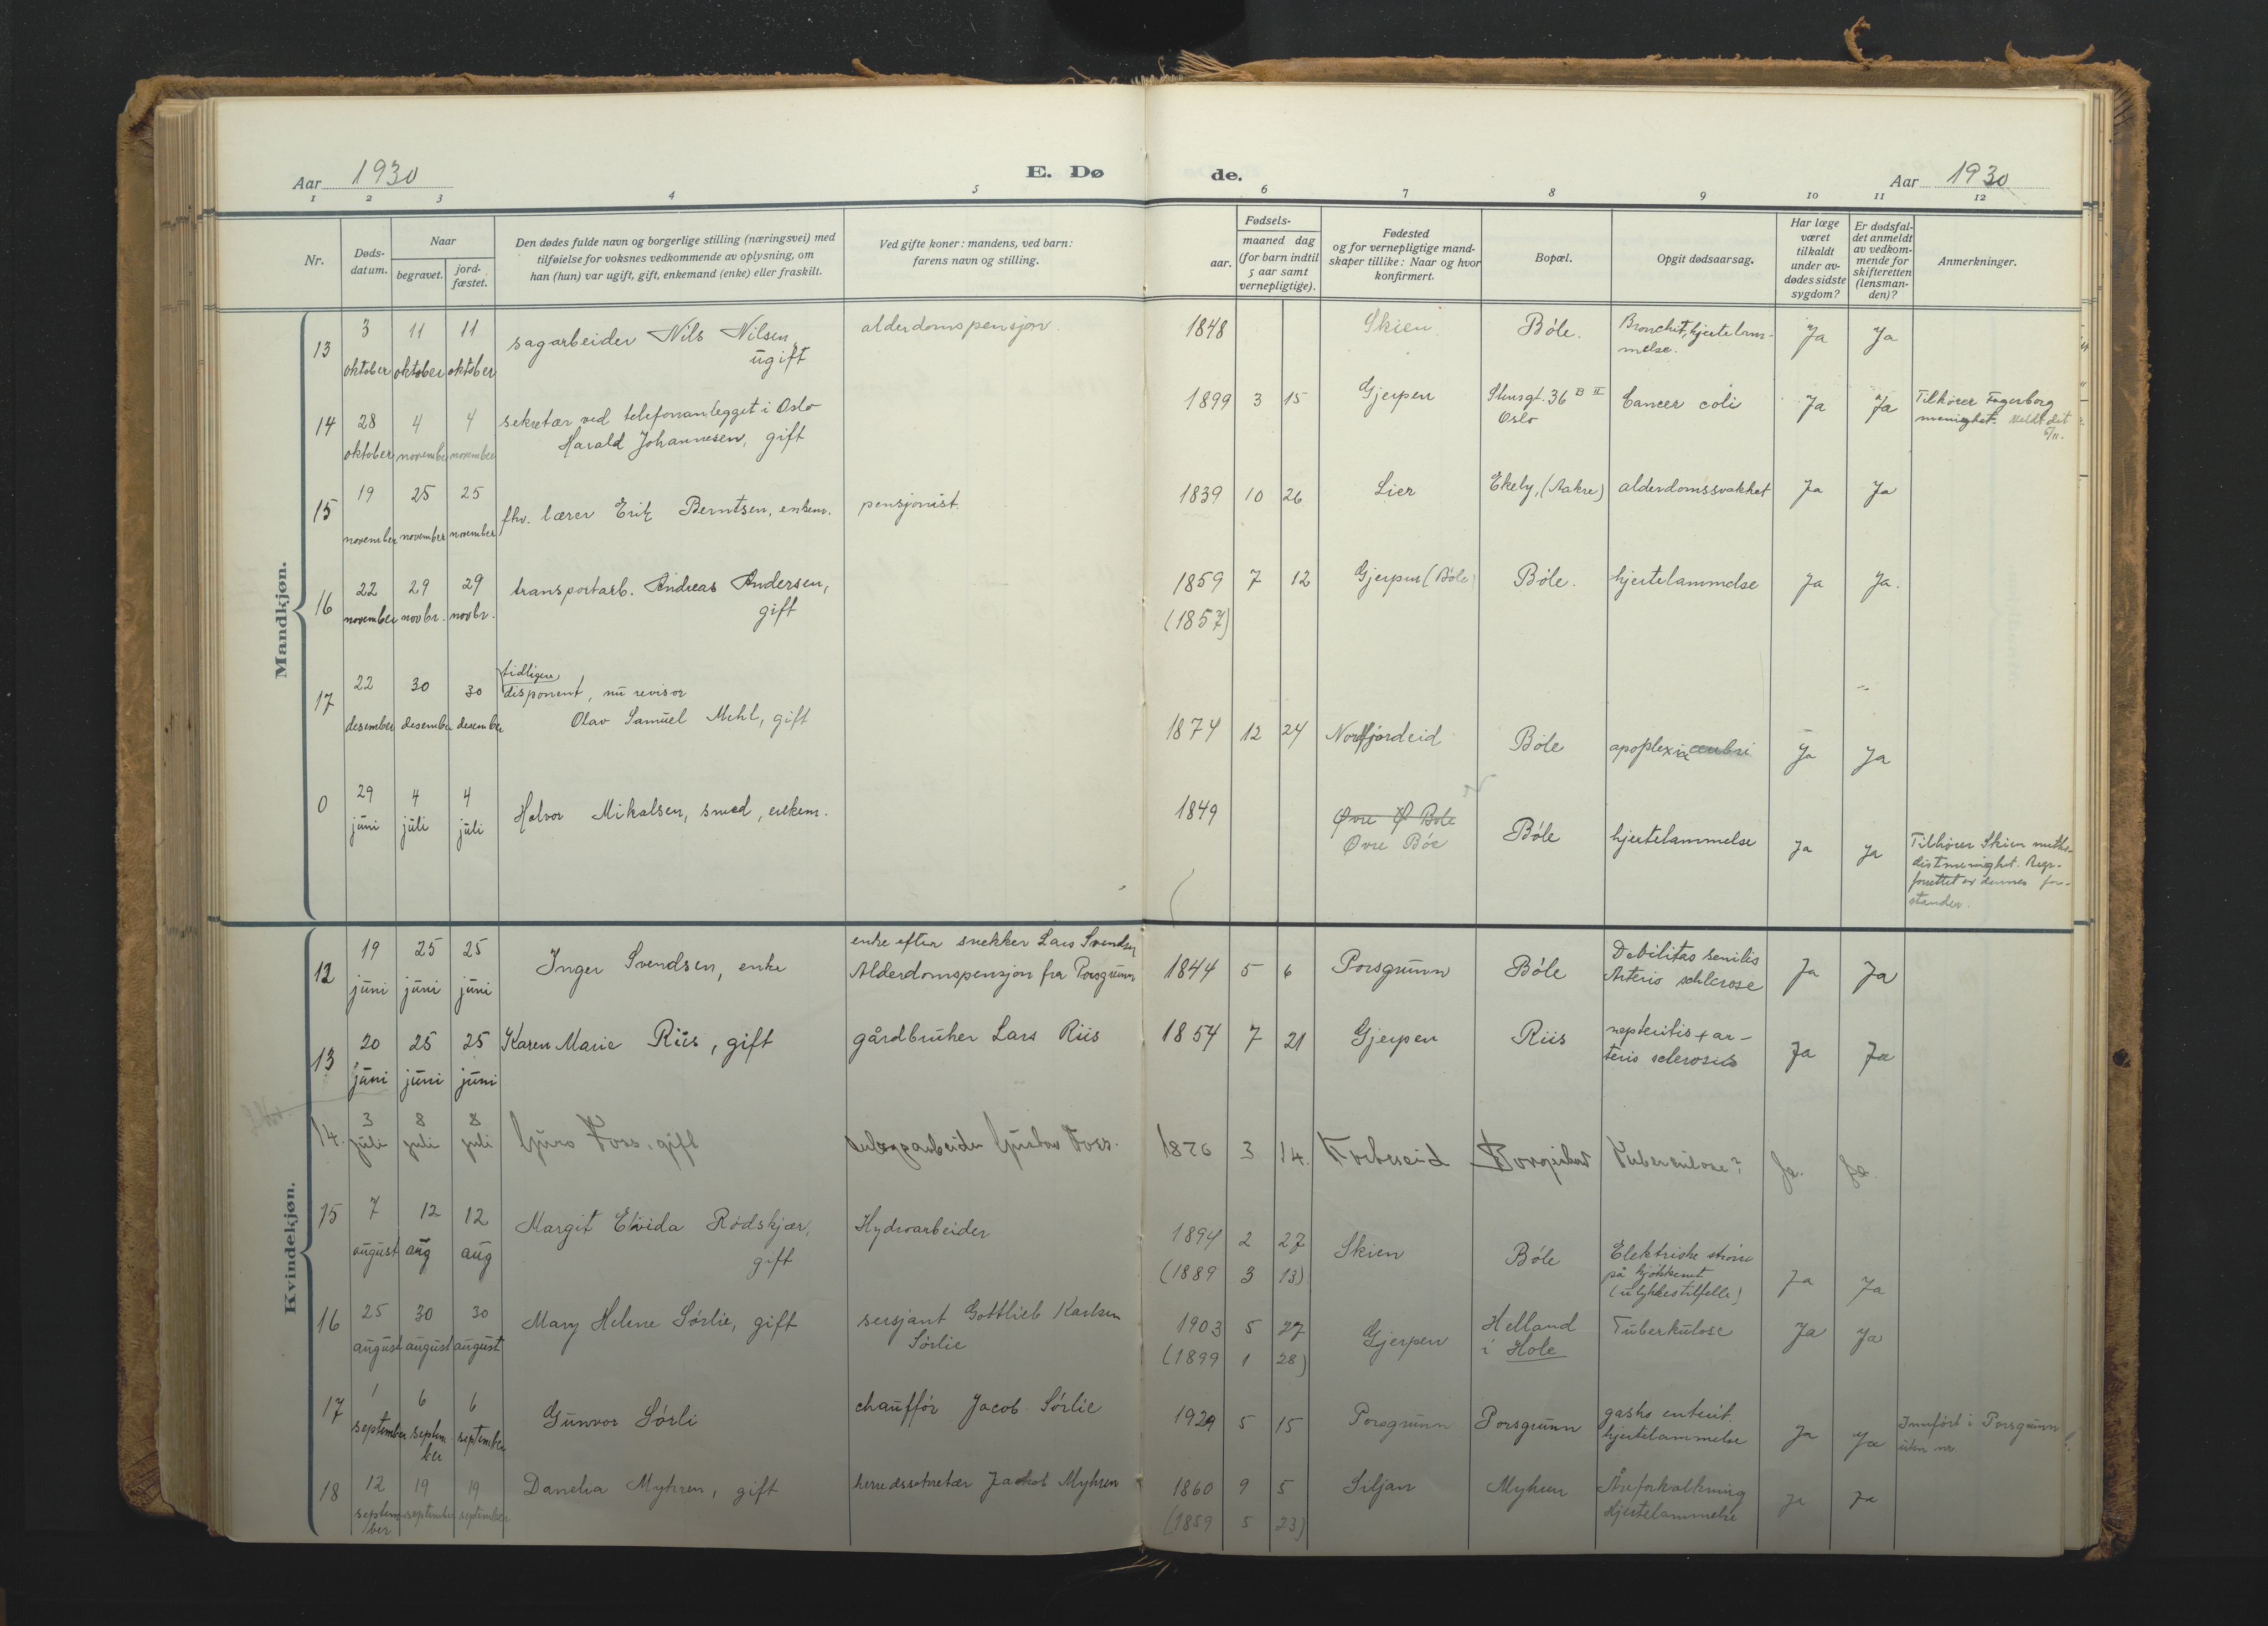 Aar 1930
E. Dø
de.
Aar 1930
1 2 3 4 5 6 7 8 9 10 11 12
Nr.
Døds-
datum.
Naar
begravet.
jord-
fæstet.
Den dødes fulde navn og borgerlige stilling (næringsvei) med
tilføielse for voksnes vedkommende av oplysning, om
han (hun) var ugift, gift, enkemand (enke) eller fraskilt.
Ved gifte koner: mandens, ved barn:
farens navn og stilling.
Fødsels-
aar.
maaned dag
(for barn indtil
5 aar samt
vernepligtige).
Fødested
og for vernepligtige mand-
skaper tillike: Naar og hvor
konfirmert.
Bopæl.
Opgit dødsaarsag.
Har læge
været
tilkaldt
under av-
dødes sidste
sygdom?
Er dødsfal-
det anmeldt
av vedkom-
mende for
skifteretten
(lensman-
den)?
Anmerkninger.
Mandkjøn.
13
3 oktober
11 oktober
11 oktober
sagarbeider Nils Nilsen,
ugift
alderdomspensjon.
1848
Skien.
Bøle.
Bronchit, hjertelam-
melse.
Ja
Ja
14
28 oktober
4 november
4 november
sekretær ved telefonanlegget i Oslo
Harald Johannesen, gift
1899 3 15
Gjerpen
36 B II
Oslo
Cancer coli
Ja
Ja
Tilhører Fagerborg
menighet. Meldt dit
5/11.
15
19 november
25 november
25 november
fhv. lærer Erik Berntsen, enkem.
pensjonist.
1839 10 26
Lier
Ekely, (Aakre)
alderdomssvakhet
Ja
Ja
16
22 november
29 novbr.
29 novbr.
transportarb. Andreas Andersen,
gift
1859 7 12
(1857)
Gjerpen (Bøle)
Bøle.
hjertelammelse
Ja
Ja.
17
22 desember
30 desember
30 desember
tidligere
disponent, nu revisor
Olav Samuel Mehl, gift
1874 12 24
Nordfjordeid
Bøle
apoplexia
Ja
Ja
0
29 juni
4 juli
4 juli
Halvor Mikalsen, smed, enkem.
1849
Øvre Ø Bøle
Øvre Bøe
Bøle
hjertelammelse
Ja
Ja
Tilhører Skien metho-
distmenighet. Begr.
forrettet av dennes for-
stander.
Kvindekjøn.
12
19 juni
25 juni
25 juni
Inger Svendsen, enke
enke efter snekker Lars Svendsen
Alderdomspensjon fra Porsgrunn
1844 5 6
Porsgrunn
Bøle
Debilitas senilis
Arterio schlerose
Ja
Ja
13
20 juni
25 juni
25 juni
Karen Marie Riis, gift
gårdbruker Lars Riis
1854 7 21
Gjerpen
Riis
nephritis + ar-
terio sclerosis
Ja
Ja
14.
3 juli
8 juli
8 juli
Guro Foss, gift
anleggsarbeider Gustav Foss.
1876 3 14.
Borgeåsen
Tuberkulose?
Ja.
Ja.
15
7 august
12 aug
12 aug
Margit Elvida Rødskjær,
gift
Hydroarbeider
1894 2 27
(1889 3 13)
Skien
Bøle
Elektriske strøm
på kjøkkenet
(ulykkestilfelle)
Ja
Ja
16
25 august
30 august
30 august
Mary Helene Sørlie, gift
sersjant Gottlieb Karlsen
Sørlie
1903 5 27
(1899 1 28)
Gjerpen
Helland
i Hole
Tuberkulose
Ja
Ja
17
1 september
6 septem
ber
6 september
Gunvor Sørli
chauffør Jacob Sørlie
1929 5 15
Porsgrunn
Porsgrunn
gastro enterit.
hjertelammelse
Ja
Ja
Innført i Porsgrunn
uten nr.
18
12 septem
ber
19 september
19 september
Danelia Myhren, gift
herredssekretær Jackob Myhren
1860 9 5
(1859 5 23)
Siljan
Myhren
Åreforkalkning
Hjertelammelse
Ja
Ja